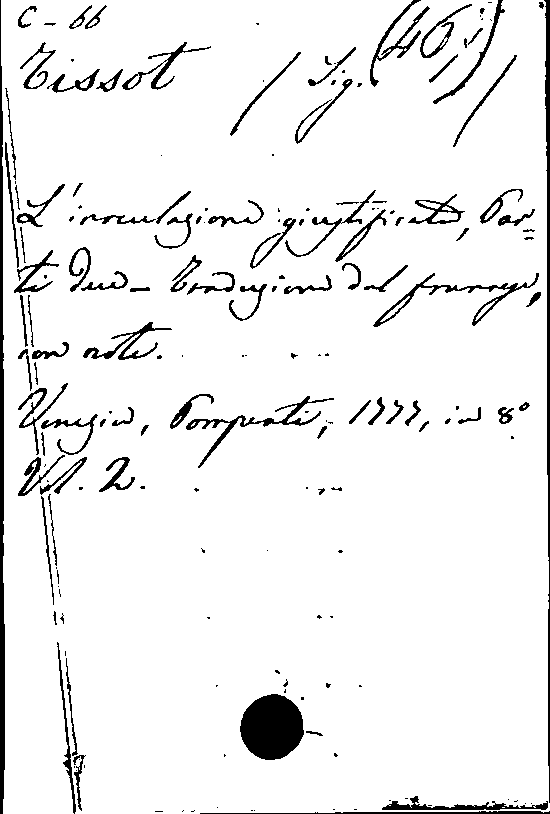 C - 66
Tissot / Sig. /
L'inoculazione giustificata, Par=
ti due - Traduzione dal francese,
con note.
Venezia, Pompeati, 1777, in 8°
Vol. 2.